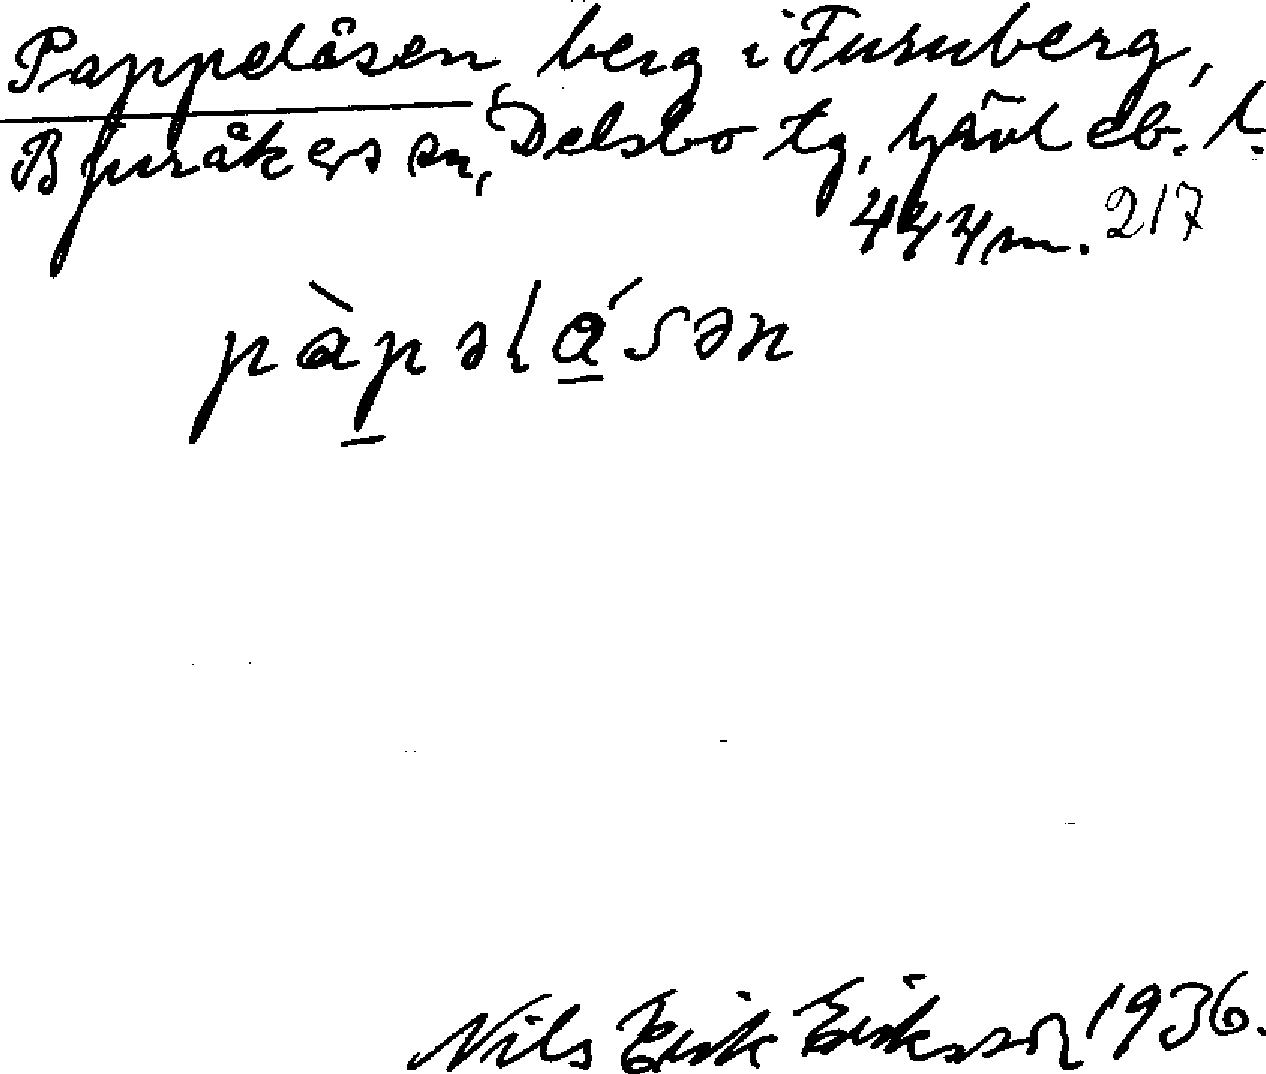 Pappelåsen, berg i Furuberg,
Bjuråkers sn, Delsbo tg, Gävleb. l.
444 m. 217
pàpəlåsən
Nils Erik Eriksson 1936.